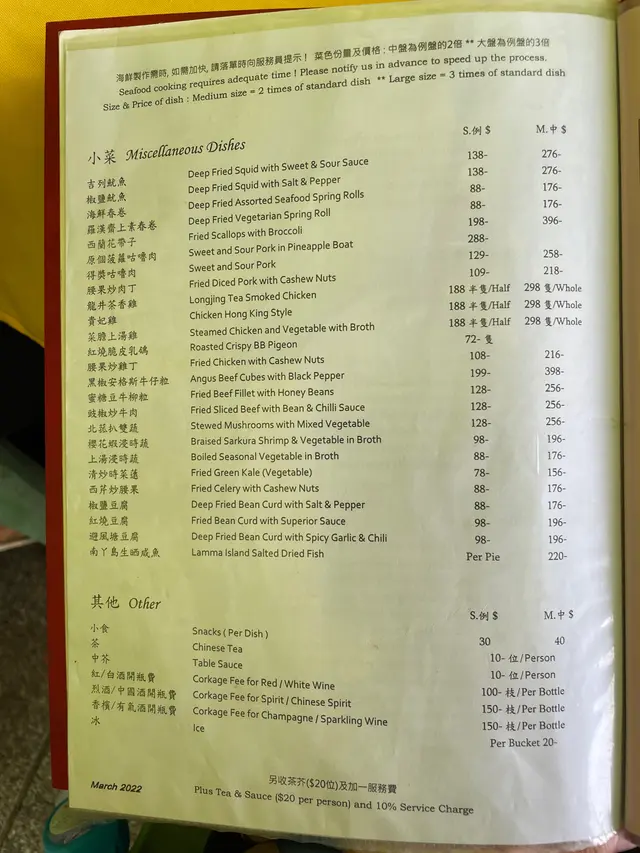 海鮮製作需時, 如需加快, 請落單時向服務員提示！ 菜色份量及價格 : 中盤為例盤的2倍 ** 大盤為例盤的3倍
Seafood cooking requires adequate time ! Please notify us in advance to speed up the process.
Size & Price of dish : Medium size = 2 times of standard dish ** Large size = 3 times of standard dish
小菜 Miscellaneous Dishes S.例 $ M.中 $
吉列魷魚 Deep Fried Squid with Sweet & Sour Sauce 138- 276-
椒鹽魷魚 Deep Fried Squid with Salt & Pepper 138- 276-
海鮮春卷 Deep Fried Assorted Seafood Spring Rolls 88- 176-
羅漢齋上素春卷 Deep Fried Vegetarian Spring Roll 88- 176-
西蘭花帶子 Fried Scallops with Broccoli 198- 396-
原個菠蘿咕嚕肉 Sweet and Sour Pork in Pineapple Boat 288-
得獎咕嚕肉 Sweet and Sour Pork 129- 258-
腰果炒肉丁 Fried Diced Pork with Cashew Nuts 109- 218-
龍井茶香雞 Longjing Tea Smoked Chicken 188 半隻/Half 298 隻/Whole
貴妃雞 Chicken Hong King Style 188 半隻/Half 298 隻/Whole
菜膽上湯雞 Steamed Chicken and Vegetable with Broth 188 半隻/Half 298 隻/Whole
紅燒脆皮乳鴿 Roasted Crispy BB Pigeon 72- 隻
腰果炒雞丁 Fried Chicken with Cashew Nuts 108- 216-
黑椒安格斯牛仔粒 Angus Beef Cubes with Black Pepper 199- 398-
蜜糖豆牛柳粒 Fried Beef Fillet with Honey Beans 128- 256-
豉椒炒牛肉 Fried Sliced Beef with Bean & Chilli Sauce 128- 256-
北菇扒雙蔬 Stewed Mushrooms with Mixed Vegetable 128- 256-
櫻花蝦浸時蔬 Braised Sarkura Shrimp & Vegetable in Broth 98- 196-
上湯浸時蔬 Boiled Seasonal Vegetable in Broth 88- 176-
清炒時菜薳 Fried Green Kale (Vegetable) 78- 156-
西芹炒腰果 Fried Celery with Cashew Nuts 88- 176-
椒鹽豆腐 Deep Fried Bean Curd with Salt & Pepper 88- 176-
紅燒豆腐 Fried Bean Curd with Superior Sauce 98- 196-
避風塘豆腐 Deep Fried Bean Curd with Spicy Garlic & Chili 98- 196-
南丫島生晒咸魚 Lamma Island Salted Dried Fish Per Pie 220-
其他 Other S.例 $ M.中 $
小食 Snacks ( Per Dish ) 30 40
茶 Chinese Tea 10- 位/Person
中芥 Table Sauce 10- 位/Person
紅/白酒開瓶費 Corkage Fee for Red / White Wine 100- 枝/Per Bottle
烈酒/中國酒開瓶費 Corkage Fee for Spirit / Chinese Spirit 150- 枝/Per Bottle
香檳/有氣酒開瓶費 Corkage Fee for Champagne / Sparkling Wine 150- 枝/Per Bottle
冰 Ice Per Bucket 20-
另收茶芥($20位)及加一服務費
March 2022 Plus Tea & Sauce ($20 per person) and 10% Service Charge